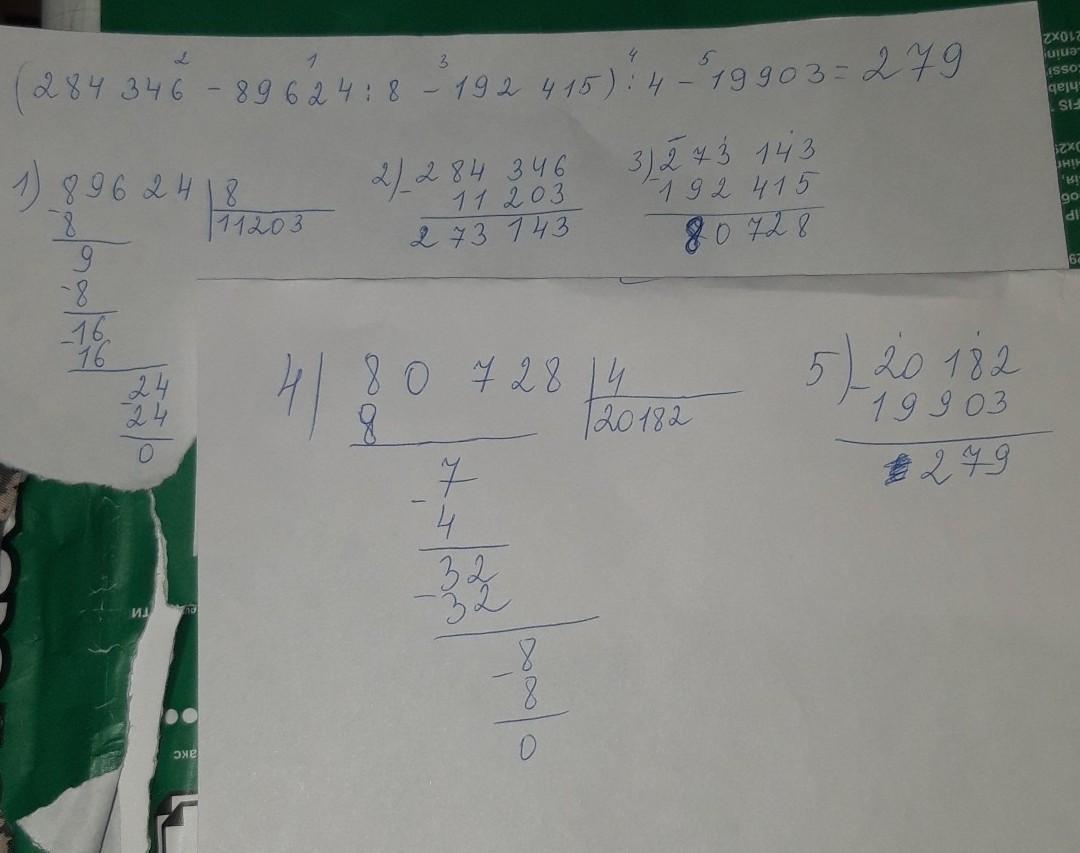 2 1 3 4 5
(284 346 - 89624 : 8 - 192 415) : 4 - 19903 = 279
1) 89624 | 8
- 8 11203
9
- 8
- 16
16
- 24
24
0
2) - 284 346
11 203
273 143
3) - 273 143
192 415
80 728
4) 80 728 | 4
8 20182
7
- 4
32
- 32
- 8
8
0
5) - 20 182
19903
279
210x2
TN
акс